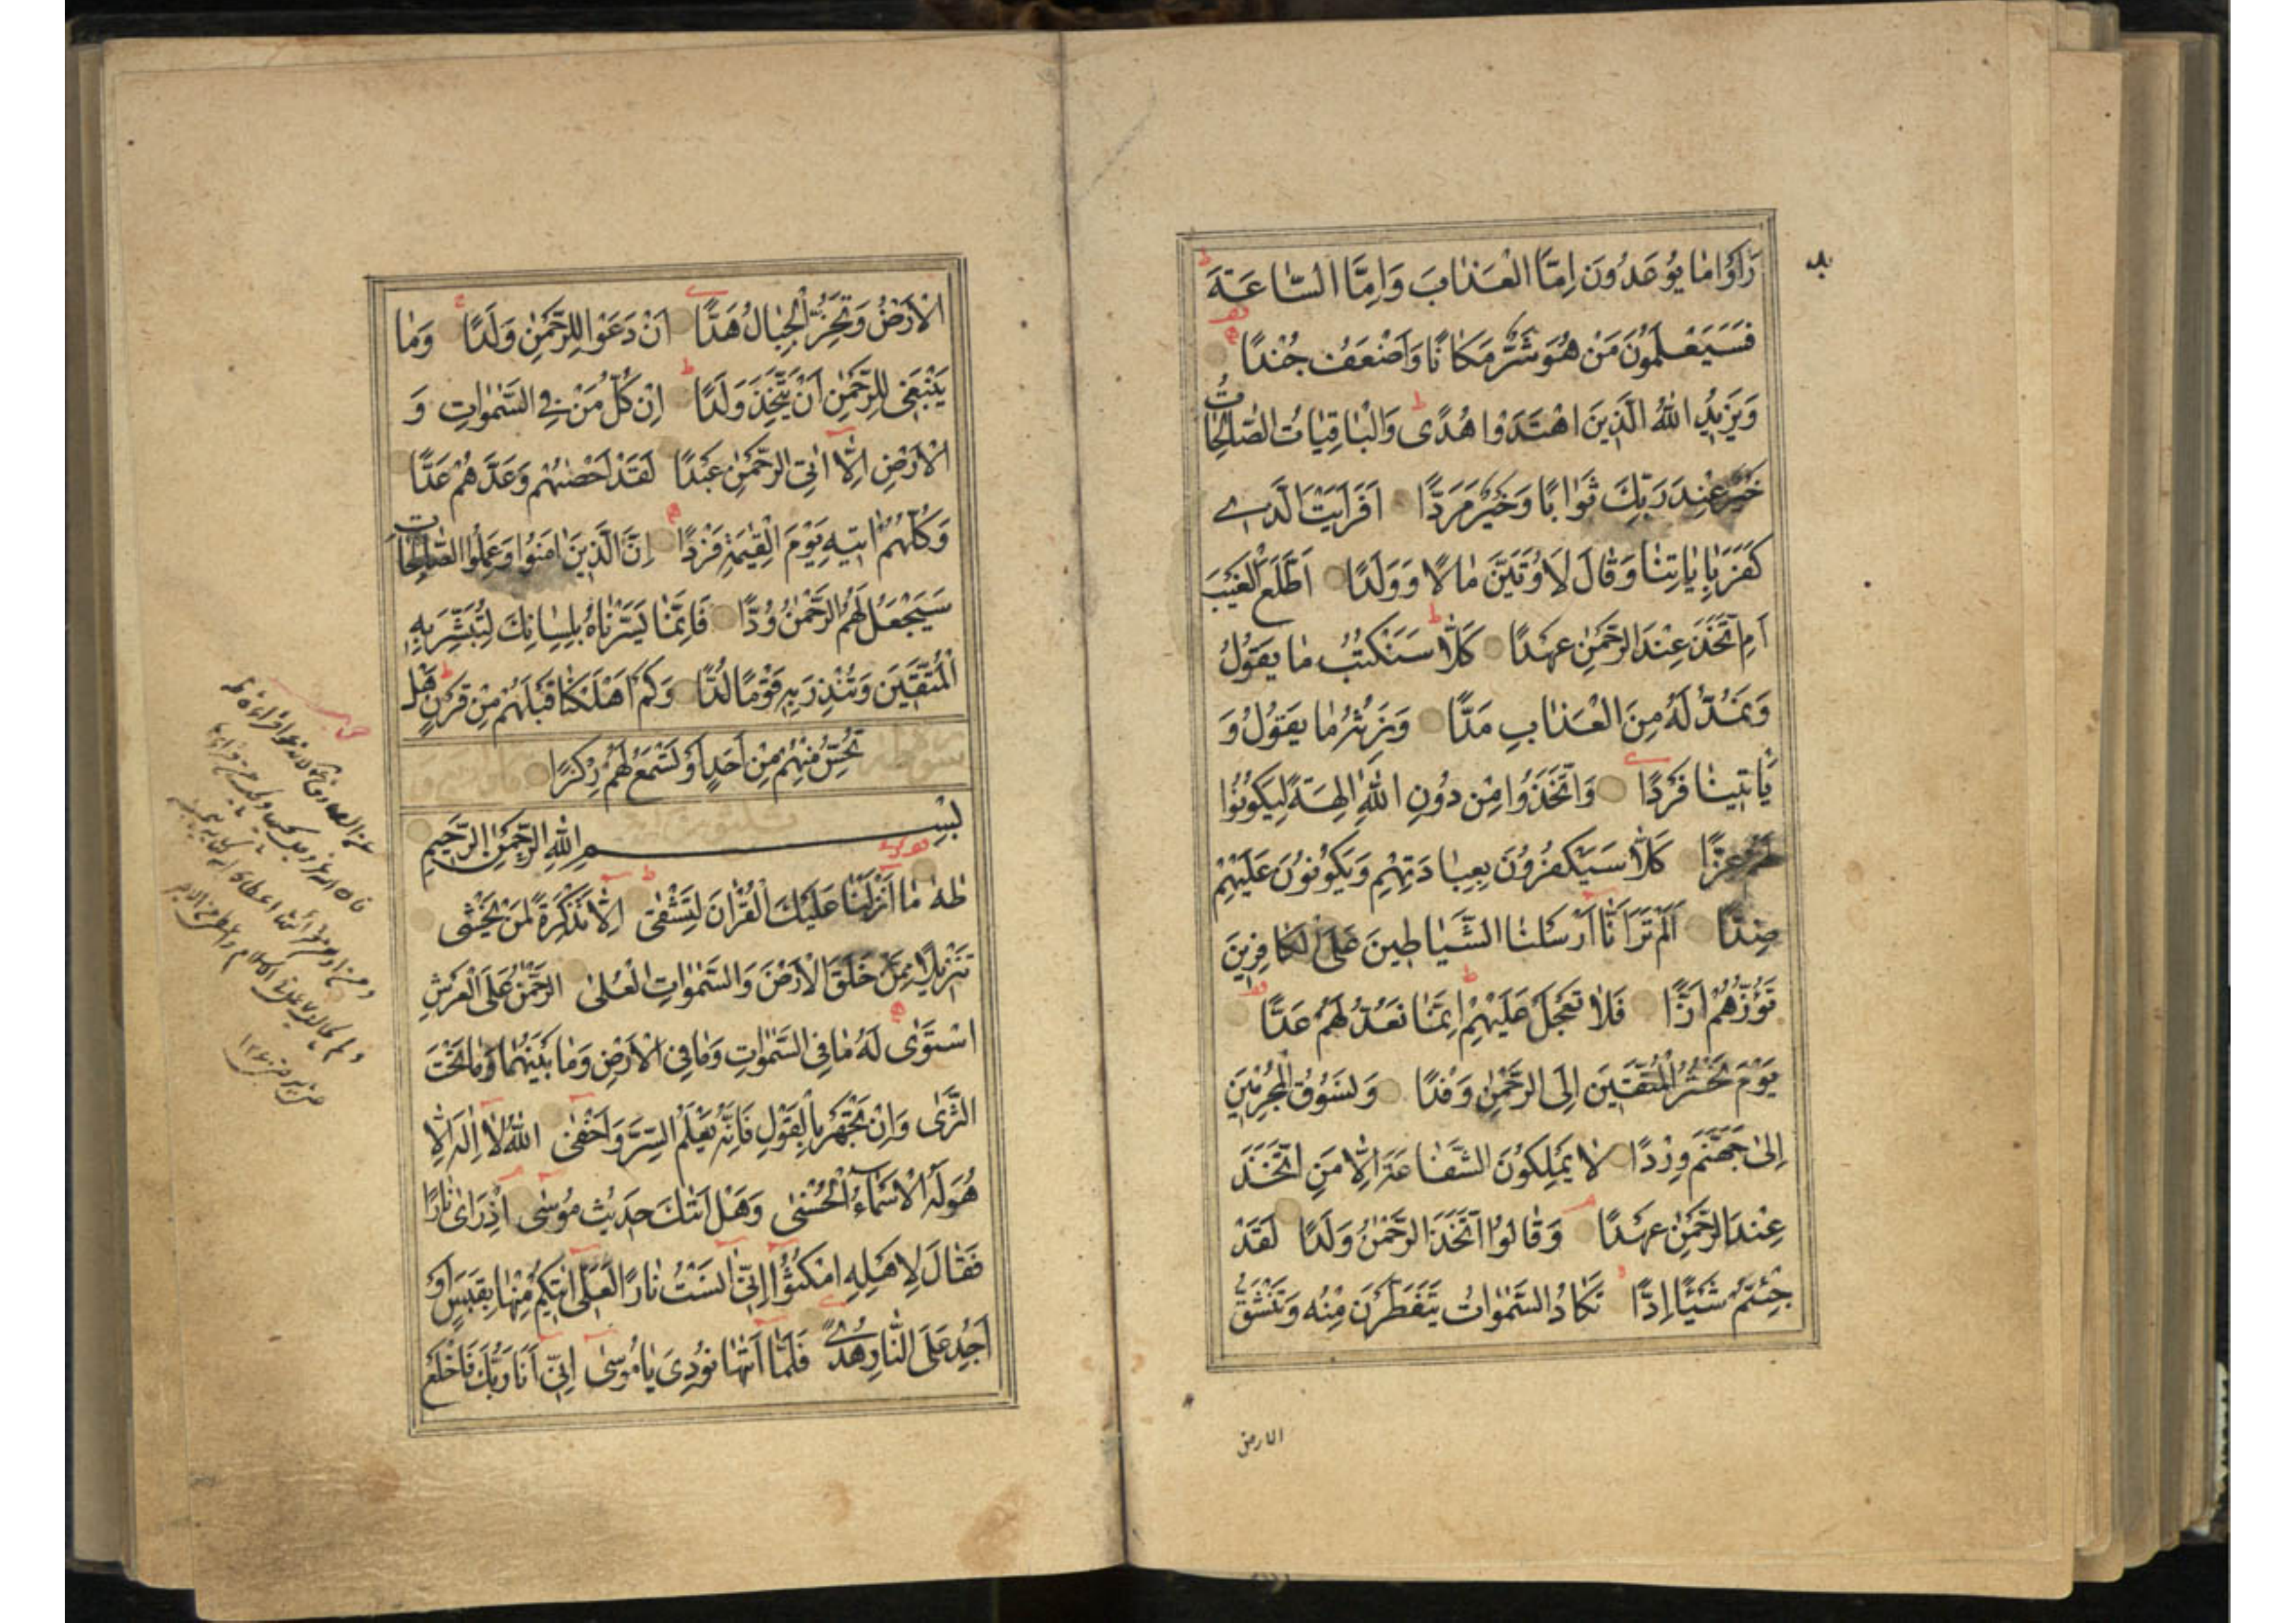 رَأَوْا مٰا يُوعَدُونَ اِمَّا الْعَذٰابَ وَاِمَّا السّٰاعَةَ
فَسَيَعْلَمُونَ مَنْ هُوَ شَرٌّ مَكٰانًا وَاَضْعَفُ جُنْدًا
وَيَزِيدُ اللّٰهُ الَّذِينَ اهْتَدَوْا هُدًى وَالْبٰاقِيٰاتُ الصّٰالِحٰاتُ
خَيْرٌ عِنْدَ رَبِّكَ ثَوٰابًا وَخَيْرٌ مَرَدًّا اَفَرَاَيْتَ الَّذِي
كَفَرَ بِاٰيٰاتِنٰا وَقٰالَ لَاُوتَيَنَّ مٰالًا وَوَلَدًا اَطَّلَعَ الْغَيْبَ
اَمِ اتَّخَذَ عِنْدَ الرَّحْمٰنِ عَهْدًا كَلّٰا سَنَكْتُبُ مٰا يَقُولُ
وَنَمُدُّ لَهُ مِنَ الْعَذٰابِ مَدًّا وَنَرِثُهُ مٰا يَقُولُ وَ
يَأْتِينٰا فَرْدًا وَاتَّخَذُوا مِنْ دُونِ اللّٰهِ اٰلِهَةً لِيَكُونُوا
لَهُمْ عِزًّا كَلّٰا سَيَكْفُرُونَ بِعِبٰادَتِهِمْ وَيَكُونُونَ عَلَيْهِمْ
ضِدًّا اَلَمْ تَرَ اَنّٰا اَرْسَلْنَا الشَّيٰاطِينَ عَلَى الْكٰافِرِينَ
تَؤُزُّهُمْ اَزًّا فَلٰا تَعْجَلْ عَلَيْهِمْ اِنَّمٰا نَعُدُّ لَهُمْ عَدًّا
يَوْمَ نَحْشُرُ الْمُتَّقِينَ اِلَى الرَّحْمٰنِ وَفْدًا وَنَسُوقُ الْمُجْرِمِينَ
اِلىٰ جَهَنَّمَ وِرْدًا لٰا يَمْلِكُونَ الشَّفٰاعَةَ اِلّٰا مَنِ اتَّخَذَ
عِنْدَ الرَّحْمٰنِ عَهْدًا وَقٰالُوا اتَّخَذَ الرَّحْمٰنُ وَلَدًا لَقَدْ
جِئْتُمْ شَيْئًا اِدًّا تَكٰادُ السَّمٰوٰاتُ يَتَفَطَّرْنَ مِنْهُ وَتَنْشَقُّ
الارض
الْاَرْضُ وَتَخِرُّ الْجِبٰالُ هَدًّا اَنْ دَعَوْا لِلرَّحْمٰنِ وَلَدًا وَمٰا
يَنْبَغِي لِلرَّحْمٰنِ اَنْ يَتَّخِذَ وَلَدًا اِنْ كُلُّ مَنْ فِي السَّمٰوٰاتِ وَ
الْاَرْضِ اِلّٰا اٰتِي الرَّحْمٰنِ عَبْدًا لَقَدْ اَحْصٰيهُمْ وَعَدَّهُمْ عَدًّا
وَكُلُّهُمْ اٰتِيهِ يَوْمَ الْقِيٰمَةِ فَرْدًا اِنَّ الَّذِينَ اٰمَنُوا وَعَمِلُوا الصّٰالِحٰاتِ
سَيَجْعَلُ لَهُمُ الرَّحْمٰنُ وُدًّا فَاِنَّمٰا يَسَّرْنٰاهُ بِلِسٰانِكَ لِتُبَشِّرَ بِهِ
الْمُتَّقِينَ وَتُنْذِرَ بِهِ قَوْمًا لُدًّا وَكَمْ اَهْلَكْنٰا قَبْلَهُمْ مِنْ قَرْنٍ هَلْ
تُحِسُّ مِنْهُمْ مِنْ اَحَدٍ اَوْ تَسْمَعُ لَهُمْ رِكْزًا
بِسْمِ اللّٰهِ الرَّحْمٰنِ الرَّحِيمِ
طٰهٰ مٰا اَنْزَلْنٰا عَلَيْكَ الْقُرْاٰنَ لِتَشْقىٰ اِلّٰا تَذْكِرَةً لِمَنْ يَخْشٰى
تَنْزِيلًا مِمَّنْ خَلَقَ الْاَرْضَ وَالسَّمٰوٰاتِ الْعُلىٰ الرَّحْمٰنُ عَلَى الْعَرْشِ
اسْتَوٰى لَهُ مٰا فِي السَّمٰوٰاتِ وَمٰا فِي الْاَرْضِ وَمٰا بَيْنَهُمٰا وَمٰا تَحْتَ
الثَّرٰى وَاِنْ تَجْهَرْ بِالْقَوْلِ فَاِنَّهُ يَعْلَمُ السِّرَّ وَاَخْفىٰ اللّٰهُ لٰا اِلٰهَ اِلّٰا
هُوَ لَهُ الْاَسْمٰاءُ الْحُسْنىٰ وَهَلْ اَتٰيكَ حَدِيثُ مُوسٰى اِذْ رَاٰى نٰارًا
فَقٰالَ لِاَهْلِهِ امْكُثُوا اِنِّي اٰنَسْتُ نٰارًا لَعَلِّي اٰتِيكُمْ مِنْهٰا بِقَبَسٍ اَوْ
اَجِدُ عَلَى النّٰارِ هُدًى فَلَمّٰا اَتٰيهٰا نُودِيَ يٰا مُوسىٰ اِنِّي اَنَا رَبُّكَ فَاخْلَعْ